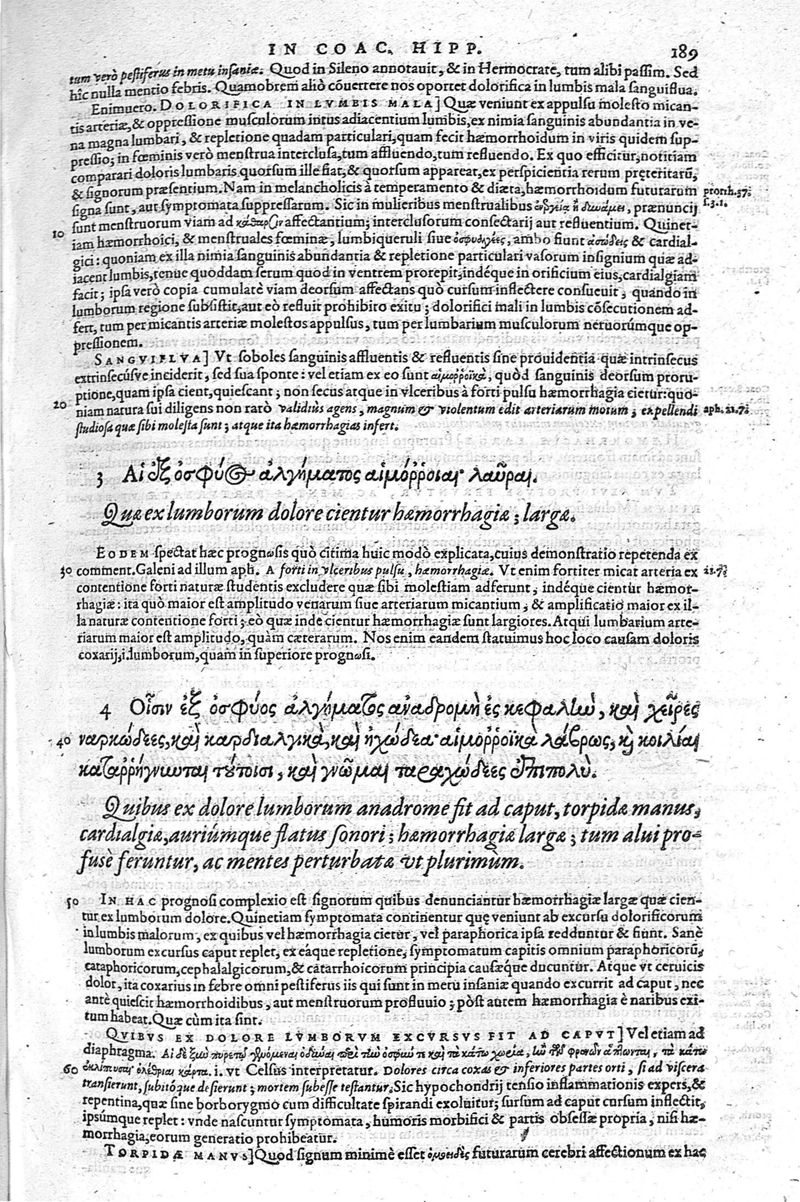 IN COAC. HIPP. 189
tum verò pestiferus in metu insaniæ. Quod in Sileno annotauit, & in Hermocrate, tum alibi passim. Sed
hic nulla mentio febris. Quamobrem aliò cõuertere nos oportet dolorifica in lumbis mala sanguiflua.
Enimuero. DOLORIFICA IN LVMBIS MALA] Quæ veniunt ex appulsu molesto mican-
tis arteriæ, & oppressione musculorum intus adiacentium lumbis, ex nimia sanguinis abundantia in ve-
na magna lumbari, & repletione quadam particulari, quam fecit hæmorrhoidum in viris quidem sup-
pressio; in fœminis verò menstrua interclusa, tum affluendo, tum refluendo. Ex quo efficitur, notitiam
comparari doloris lumbaris quorsum ille fiat, & quorsum appareat, ex perspicientia rerum præteritarũ,
& signorum præsentium. Nam in melancholicis à temperamento & diæta, hæmorrhoidum futurarum
signa sunt, aut symptomata suppressarum. Sic in mulieribus menstrualibus ἐνεργείᾳ ἢ δυνάμει, prænuncij
sunt menstruorum viam ad κάθαρσιν affectantium; interclusorum consectarij aut refluentium. Quinet-
10 iam hæmorrhoici, & menstruales fœminæ, lumbiqueruli siue ὀσφυαλγέες, ambo fiunt ἀσώδεις & cardial-
gici: quoniam ex illa nimia sanguinis abundantia & repletione particulari vasorum insignium quæ ad-
iacent lumbis, tenue quoddam serum quod in ventrem prorepit, indéque in orificium eius, cardialgiam
facit; ipsa verò copia cumulatè viam deorsum affectans quò cursum inflectere consueuit, quando in
lumborum regione subsistit, aut eò refluit prohibito exitu; dolorifici mali in lumbis cõsecutionem ad-
fert, tum per micantis arteriæ molestos appulsus, tum per lumbarium musculorum neruorúmque op-
pressionem.
SANGVIFLVA] Vt soboles sanguinis affluentis & refluentis sine prouidentia quæ intrinsecus
extrinsecúsve inciderit, sed sua sponte: vel etiam ex eo sunt αἱμοῤῥοϊκὰ, quòd sanguinis deorsum proru-
ptione, quam ipsa cient, quiescant; non secus atque in vlceribus à forti pulsu hæmorrhagia cietur: quo-
20 niam natura sui diligens non rarò validiùs agens, magnum & violentum edit arteriarum motum; expellendi
studiosa quæ sibi molesta sunt; atque ita hæmorrhagias infert.
prorrh. 37.
aph. 21. 7.
3 Αἱ ἐξ ὀσφύος ἀλγήματος αἱμοῤῥοίαι· λαῦραι.
Quæ ex lumborum dolore cientur hæmorrhagiæ; largæ.
EODEM spectat hæc prognωsis quò citima huic modò explicata, cuius demonstratio repetenda ex
30 comment. Galeni ad illum aph. A forti in vlceribus pulsu, hæmorrhagiæ. Vt enim fortiter micat arteria ex
contentione forti naturæ studentis excludere quæ sibi molestiam adferunt, indéque cientur hæmor-
rhagiæ: ita quò maior est amplitudo venarum siue arteriarum micantium, & amplificatio maior ex il-
la naturæ contentione forti; eò quæ inde cientur hæmorrhagiæ sunt largiores. Atqui lumbarium arte-
riarum maior est amplitudo, quàm cæterarum. Nos enim eandem statuimus hoc loco causam doloris
coxarij, i. lumborum, quam in superiore prognωsi.
4 Οἷσιν ἐξ ὀσφύος ἀλγήματος ἀναδρομὴ ἐς κεφαλὴν, καὶ χεῖρες
40 ναρκώδεες, καὶ καρδιαλγικὰ, καὶ ἠχώδεα· αἱμοῤῥοϊκὰ λάβρως, καὶ κοιλίαι
καταῤῥήγνυνται τούτοισι, καὶ γνῶμαι ταραχώδεες ἐπιπολύ.
Quibus ex dolore lumborum anadrome fit ad caput, torpidæ manus,
cardialgiæ, auriúmque flatus sonori; hæmorrhagiæ largæ; tum alui pro-
fusè feruntur, ac mentes perturbatæ vt plurimùm.
50 IN HAC prognosi complexio est signorum quibus denunciantur hæmorrhagiæ largæ quæ cien-
tur ex lumborum dolore. Quinetiam symptomata continentur quę veniunt ab excursu dolorificorum
in lumbis malorum, ex quibus vel hæmorrhagia cietur, vel paraphorica ipsa redduntur & fiunt. Sanè
lumborum excursus caput replet, ex eáque repletione, symptomatum capitis omnium paraphoricorũ,
cataphoricorum, cephalalgicorum, & catarrhoicorum principia causæque ducuntur. Atque vt ceruicis
dolor, ita coxarius in febre omni pestiferus iis qui sunt in metu insaniæ quando excurrit ad caput, nec
antè quiescit hæmorrhoidibus, aut menstruorum profluuio; pòst autem hæmorrhagia è naribus exi-
tum habeat. Quæ cùm ita sint.
QVIBVS EX DOLORE LVMBORVM EXCVRSVS FIT AD CAPVT] Vel etiam ad
diaphragma.
60 i. vt Celsus interpretatur. Dolores circa coxas & inferiores partes orti, si ad viscera
transierunt, subitóque desierunt; mortem subesse testantur. Sic hypochondrij tensio inflammationis expers, &
repentina, quæ sine borborygmo cum difficultate spirandi exoluitur; sursum ad caput cursum inflectit,
ipsúmque replet: vnde nascuntur symptomata, humoris morbifici & partis obsessæ propria, nisi hæ-
morrhagia, eorum generatio prohibeatur.
TORPIDÆ MANVS] Quod signum minimè esset futurarum cerebri affectionum ex hac